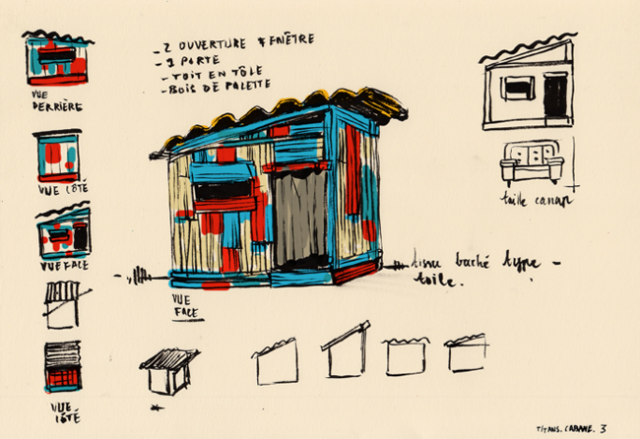 - 2 OUVERTURE FENÊTRE
- 1 PORTE
- TOIT EN TÔLE
- BOIS DE PALETTE
VUE
DERRIÈRE
VUE CÔTÉ
VUE FACE
VUE
CÔTÉ
VUE
FACE
taille canap
tissu baché type -
toile.
TITANS. CABANE. 3